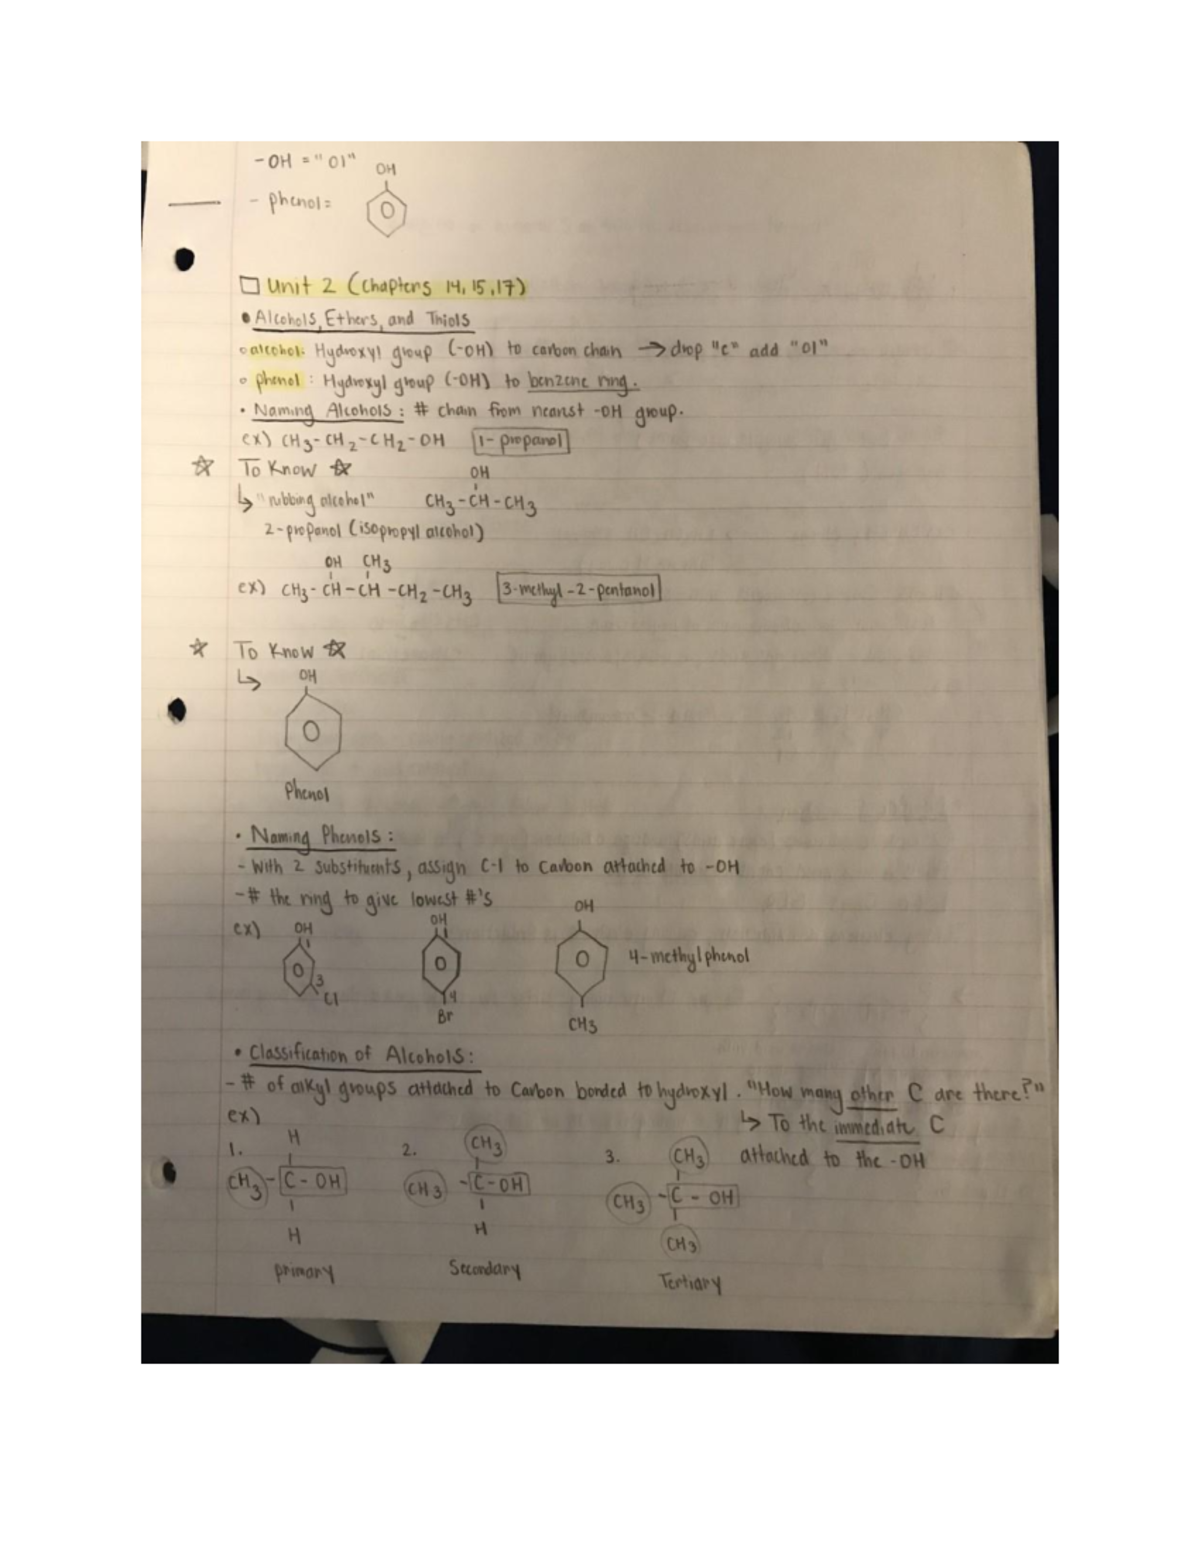 -OH = "ol"
OH
- phenol=
Unit 2 (Chapters 14, 15, 17)
• Alcohols, Ethers, and Thiols
o alcohol: Hydroxyl group (-OH) to carbon chain → drop "e" add "ol"
o phenol : Hydroxyl group (-OH) to benzene ring.
• Naming Alcohols : # chain from nearest -OH group.
ex) CH3-CH2-CH2-OH 1-propanol
☆ To Know ☆ OH
↳ "rubbing alcohol" CH3-CH-CH3
2-propanol (isopropyl alcohol)
OH CH3
ex) CH3-CH-CH-CH2-CH3 3-methyl-2-pentanol
☆ To Know ☆
↳ OH
Phenol
• Naming Phenols :
- With 2 substituents, assign C-1 to Carbon attached to -OH
- # the ring to give lowest #'s
ex) OH OH OH
1 1
3 4-methylphenol
Cl 4
Br CH3
• Classification of Alcohols:
- # of alkyl groups attached to Carbon bonded to hydroxyl. "How many other C are there?"
ex) ↳ To the immediate C
attached to the -OH
1. H 2. CH3 3. CH3
CH3-C-OH CH3-C-OH CH3-C-OH
H H CH3
primary Secondary Tertiary